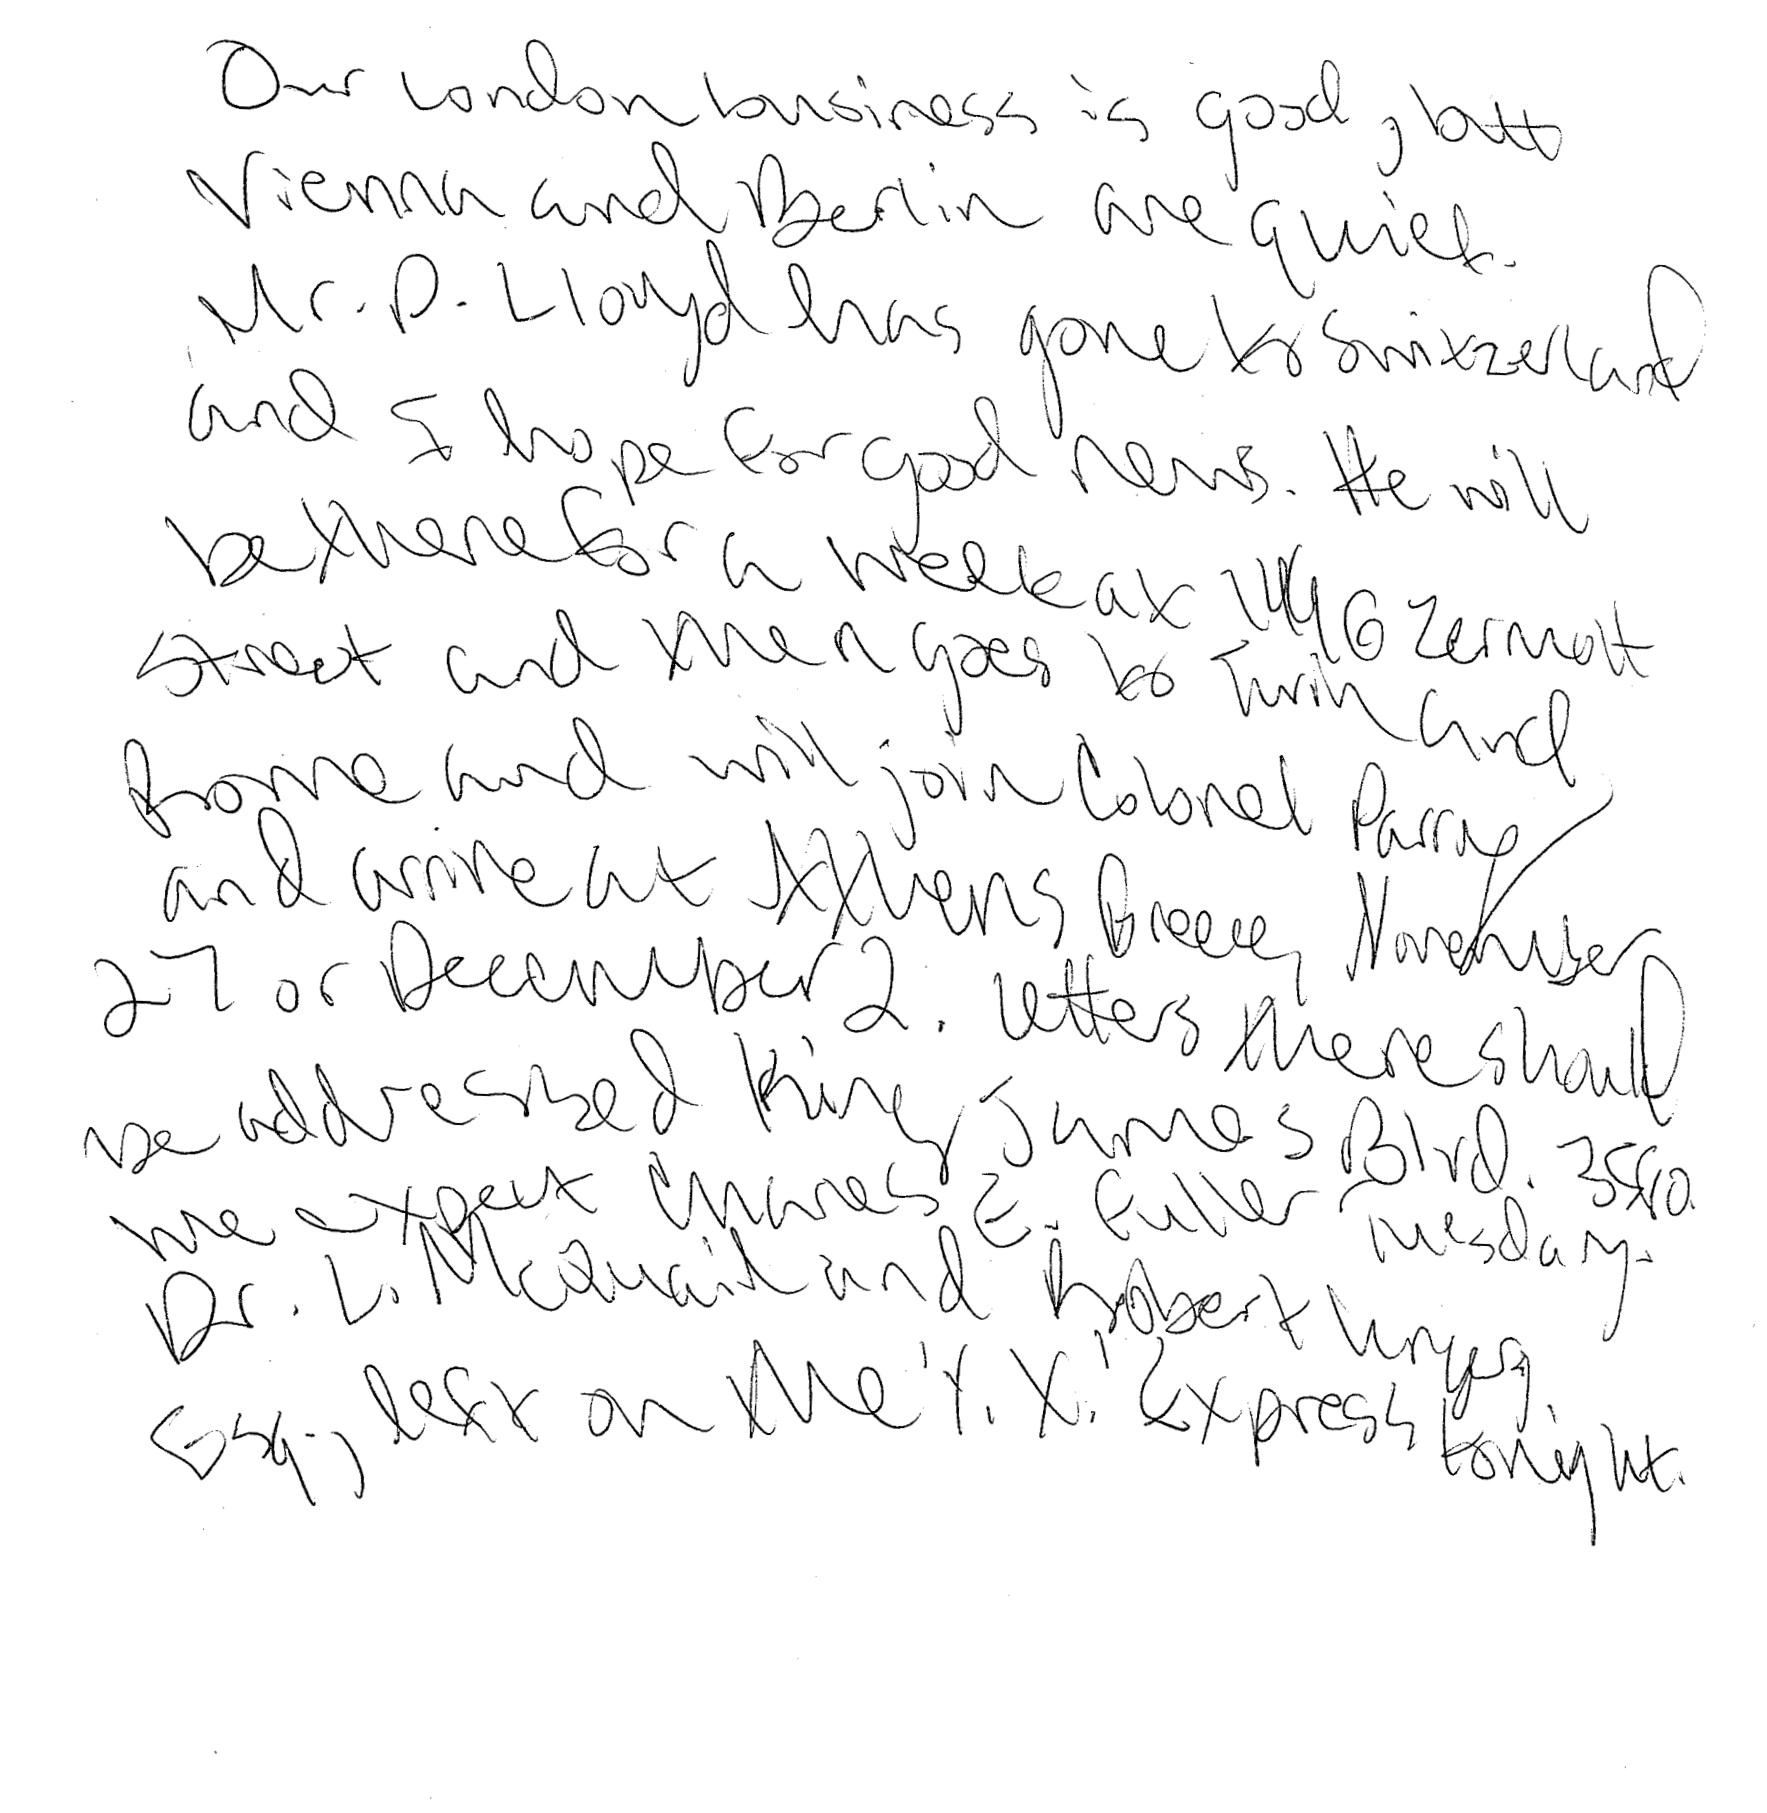 Our London business is good, but
Vienna and Berlin are quiet.
Mr. D. Lloyd has gone to Switzerland
and I hope for good news. He will
be there for a week at 1496 Zermott
Street and then goes to Turin and
Rome and will join Colonel Parry
and arrive at Athens Greece, November
27 or December 2. Letters there should
be addressed King James Blvd. 3580.
We expect Charles E. Fuller Tuesday.
Dr. L. McQuaid and Robert Unger,
Esq., left on the 'Y. X.' Express tonight.